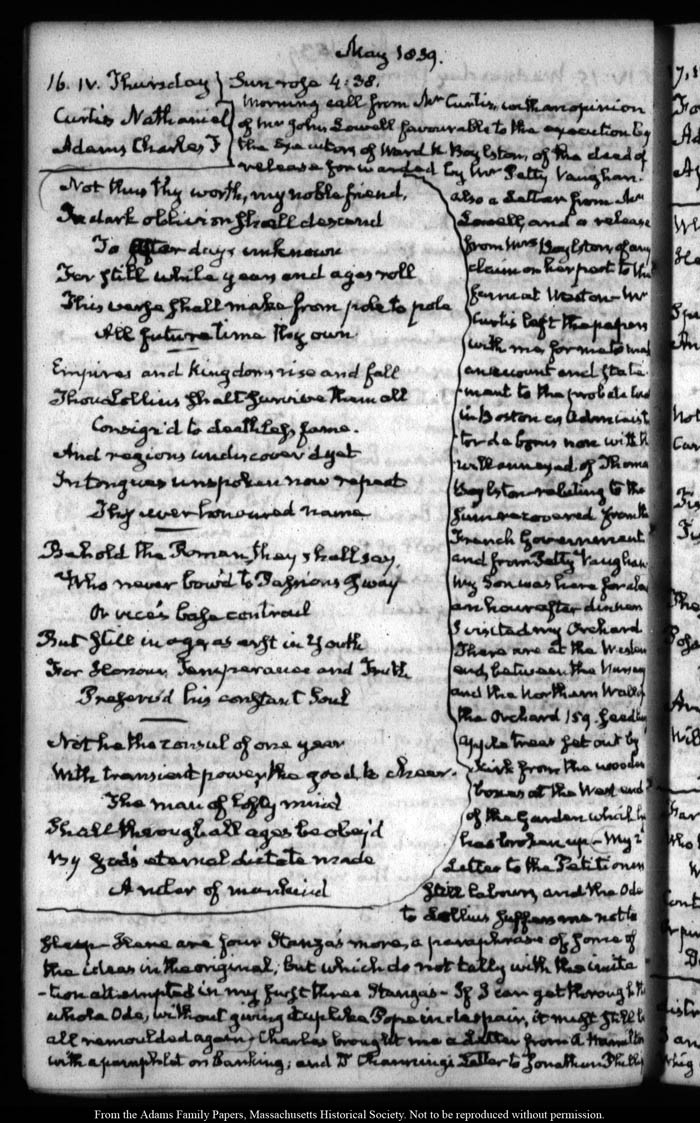 May 1839.
16. IV. Thursday } Sun rose 4:38.
Curtis Nathaniel
Adams Charles F
Morning call from Mr Curtis, with an opinion
of Mr John Lowell favourable to the execution by
the Executors of Ward N. Boylston, of the deed of
release forwarded by Mr Petty Vaughan.
Not thus thy worth, my noble friend,
In dark oblivion shall descend
To after days unknown
For still while years and ages roll
This verse shall make from pole to pole
All future time thy own.
Empires and Kingdoms rise and fall
Thou Lollius shalt survive them all
Consign'd to deathless fame.
And regions undiscover'd yet
In tongues unspoken now repeat
Thy ever honoured name
Behold the Roman, they shall say,
Who never bow'd to Passion's sway
Or vice's base controul
But still in age, as erst in Youth
For Honour, Temperance and Truth
Preserv'd his constant Soul
Not he the consul of one year
With transient power, the good to cheer.
The man of lofty mind
Shall through all ages be obey'd
By God's eternal dictate made
A ruler of mankind
also a Letter from Mr
Lowell, and a release
from Mrs Boylston of any
claim on her part to the
farm at Weston. Mr
Curtis left the papers
with me, for me to
an account and state-
-ment to the probate
in Boston as
de bonis non with
will annexed of Thomas
Boylston relating to the
sum recovered from the
French Government
and from Petty Vaughan
My Son was here for
an hour after dinner
I visited my Orchard
There are at the Western
end, between the Nursery
and the Northern
the Orchard 159. seedling
apple trees set out by
Kirk from the wooden
boxes at the West end
of the Garden which he
has broken up — My 2
Letter to the Petitioners
still labours, and the Ode
to Lollius suffers me not to
sleep — Here are four Stanza's more, a paraphrase of some of
the ideas in the original, but which do not tally with the imita-
-tion attempted in my first three Stanzas — If I can get through the
whole Ode, without giving it up like Pope in despair, it must still be
all remoulded again. Charles brought me a Letter from A. Hamilton
with a pamphlet on Banking; and Dr Channing's Letter to Jonathan Phillips
From the Adams Family Papers, Massachusetts Historical Society. Not to be reproduced without permission.